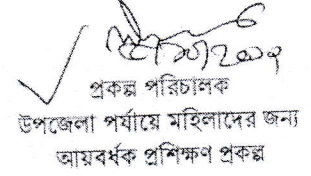 প্রকল্প পরিচালক
উপজেলা পর্যায়ে মহিলাদের জন্য
আয়বর্ধক প্রশিক্ষণ প্রকল্প